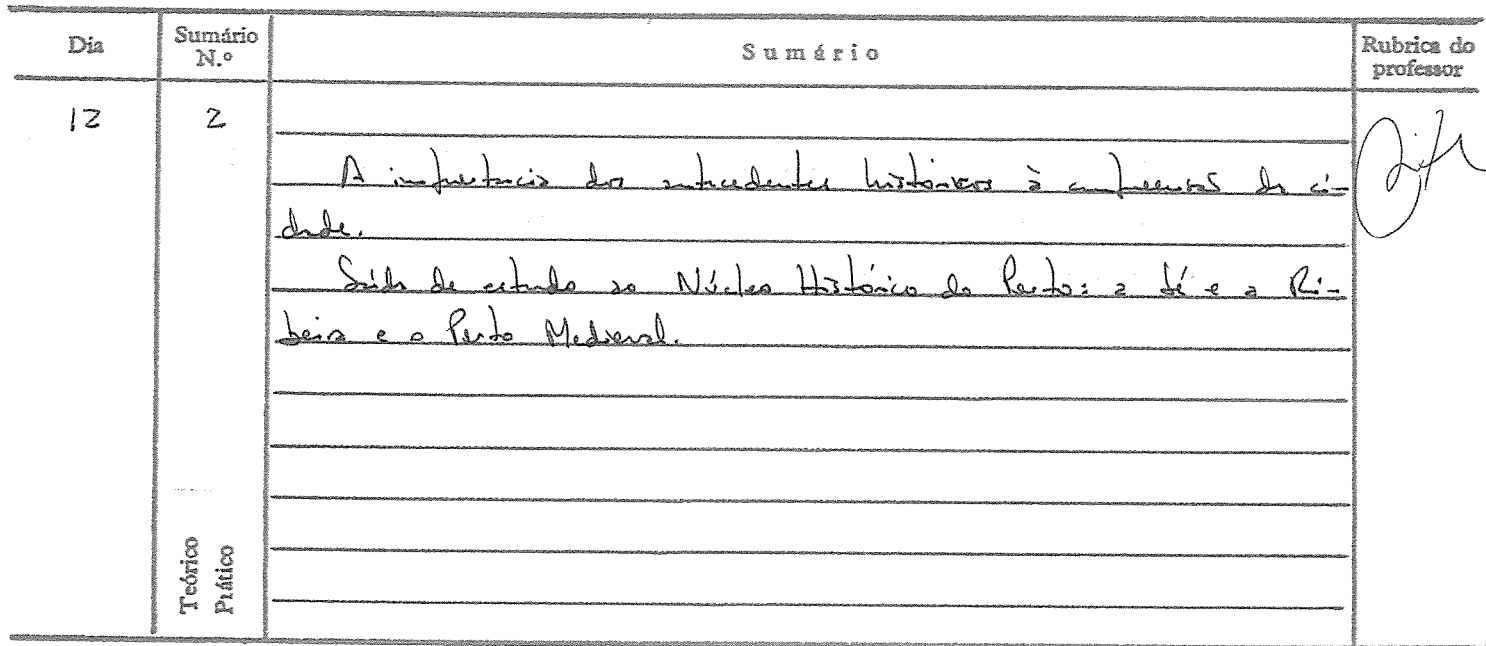 Dia
Sumário N.º
Sumário
Rubrica do professor
12
2
A importancia dos antecedentes históricos à compreensão da ci-
dade.
Saída de estudo ao Núcleo Histórico do Porto: a Sé e a Ri-
beira e o Porto Medieval.
Teórico
Prático